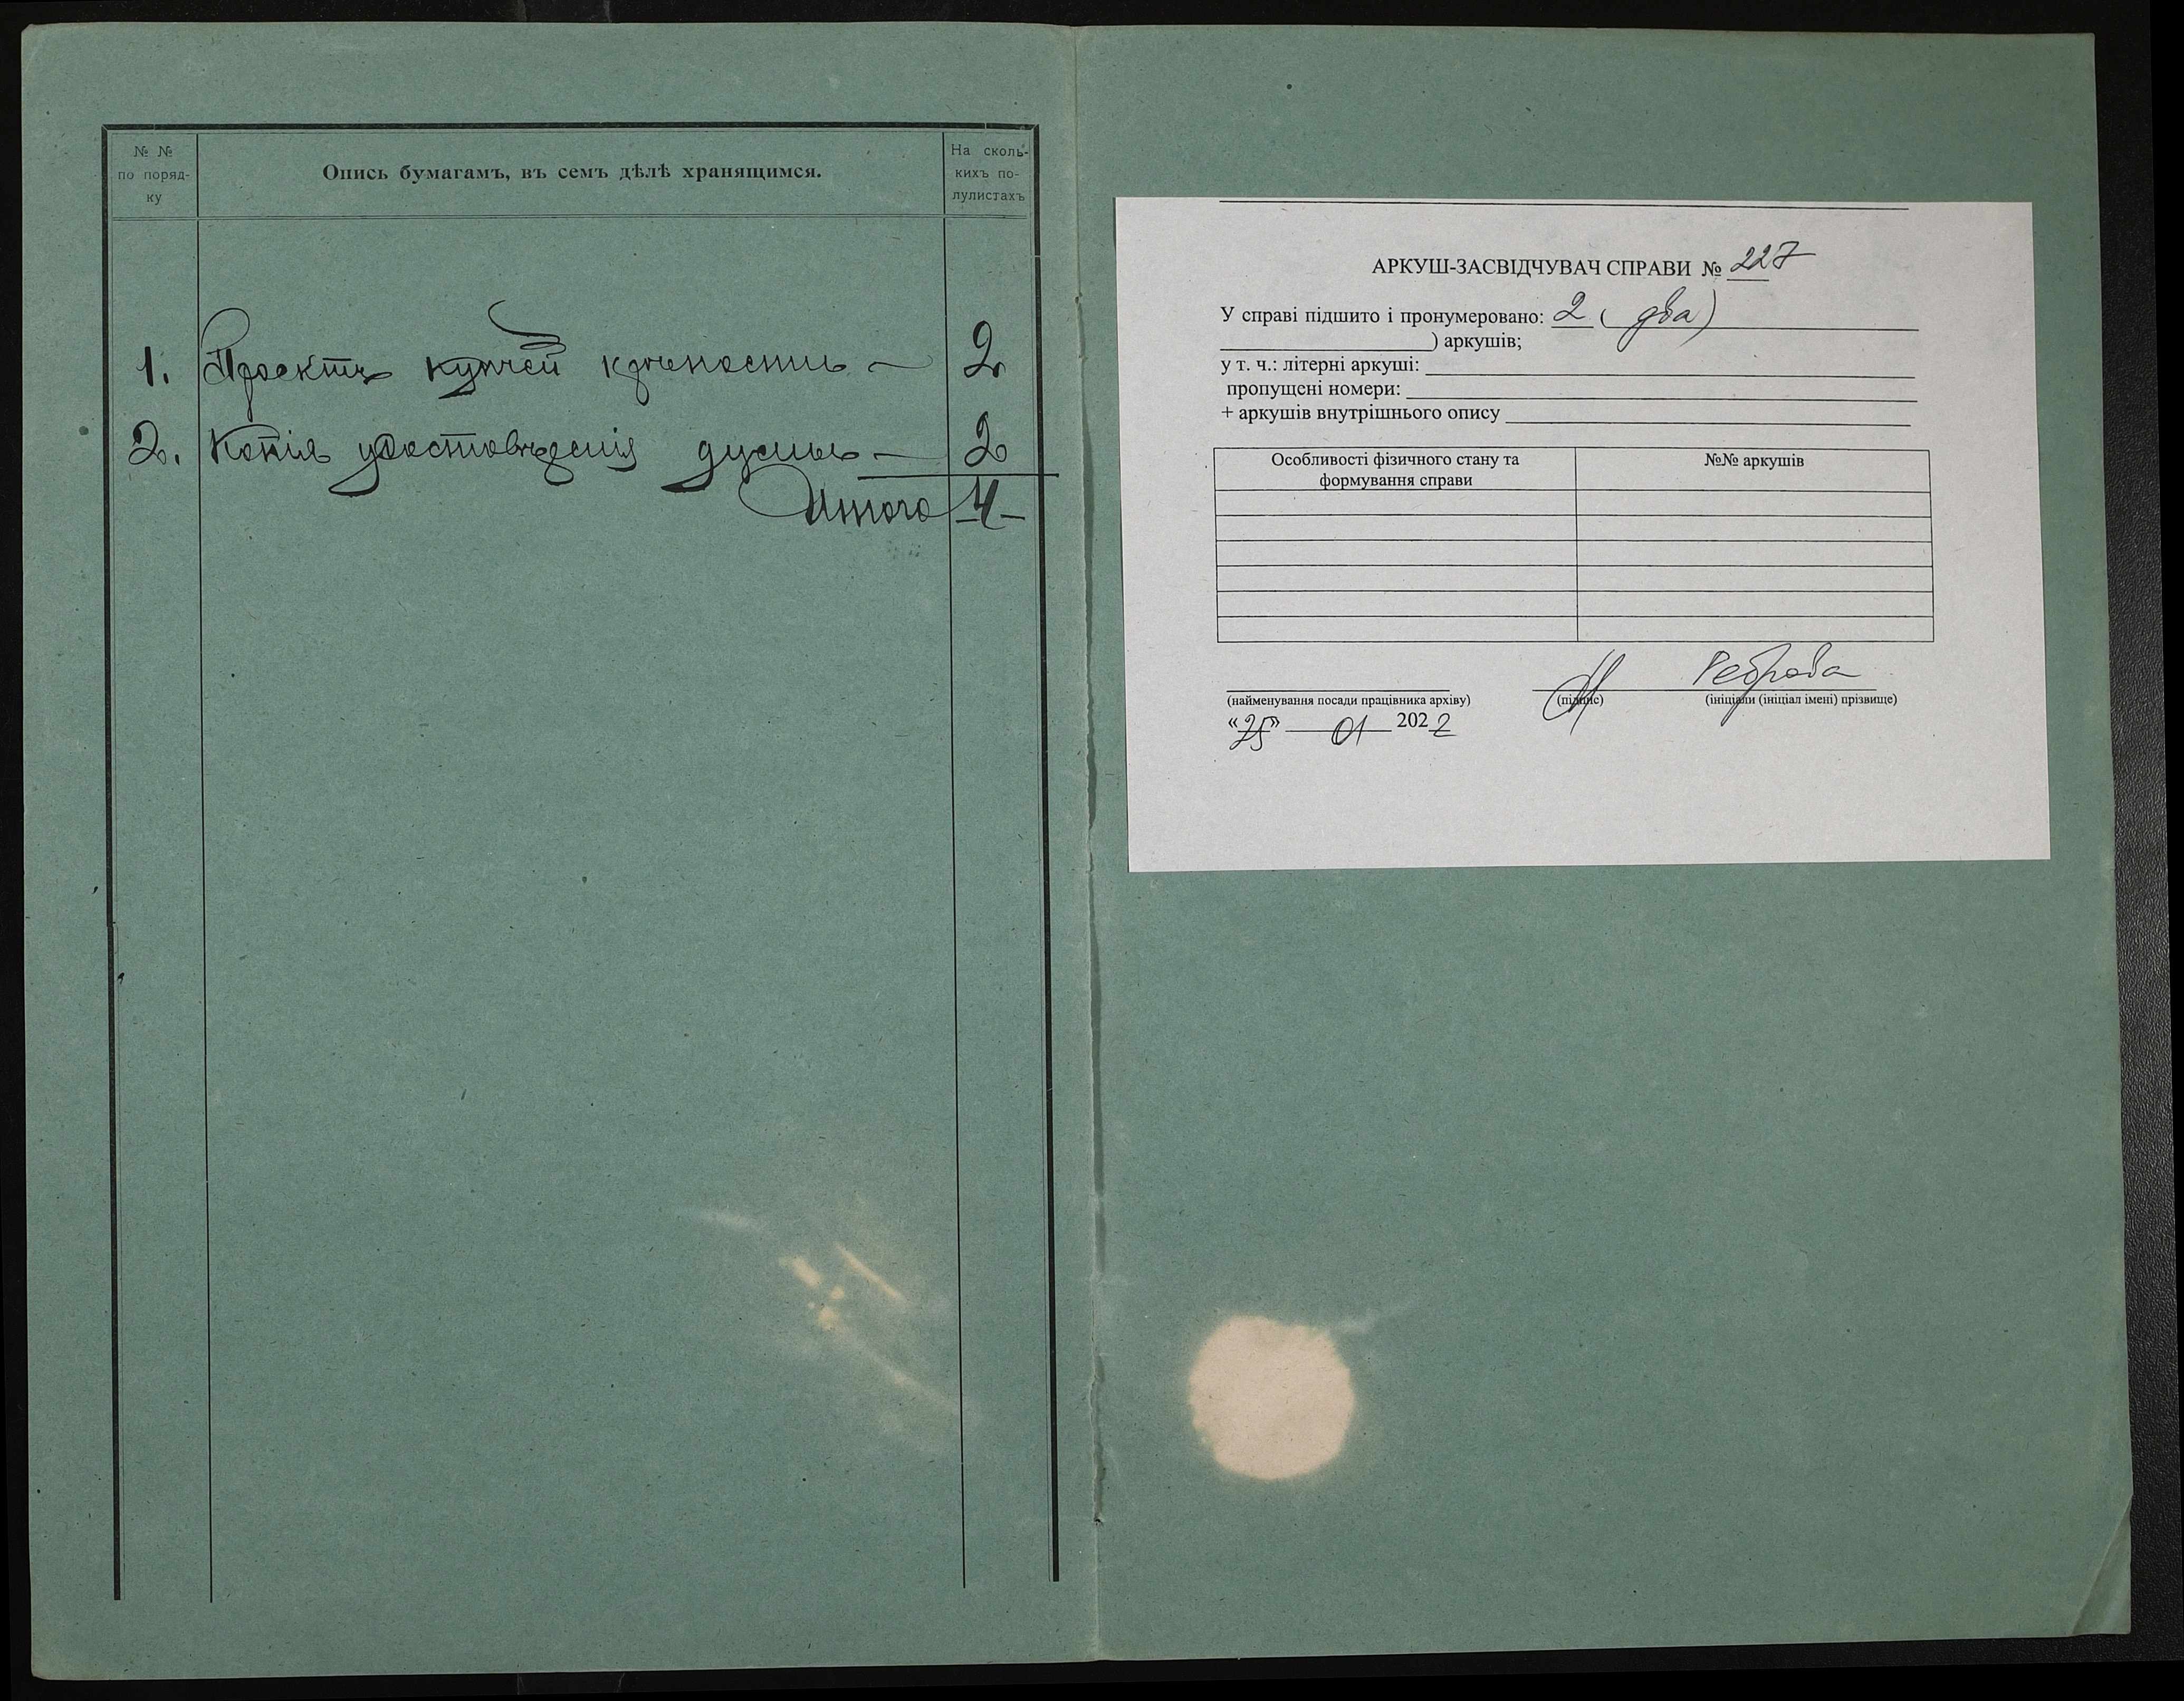 № №
по поряд-
ку
Опись бумагамъ, въ семъ дѣлѣ хранящимся.
На сколь-
кихъ по-
лулистахъ
1. Проектъ купчей крѣпости — 2
2. Копія удостовѣренія думы — 2
Итого 4
АРКУШ-ЗАСВІДЧУВАЧ СПРАВИ № 227
У справі підшито і пронумеровано: 2 ( два)
) аркушів;
у т. ч.: літерні аркуші:
пропущені номери:
+ аркушів внутрішнього опису
Особливості фізичного стану та
формування справи
№№ аркушів
Реброва
(найменування посади працівника архіву) (підпис) (ініціали (ініціал імені) прізвище)
«25» 01 2022